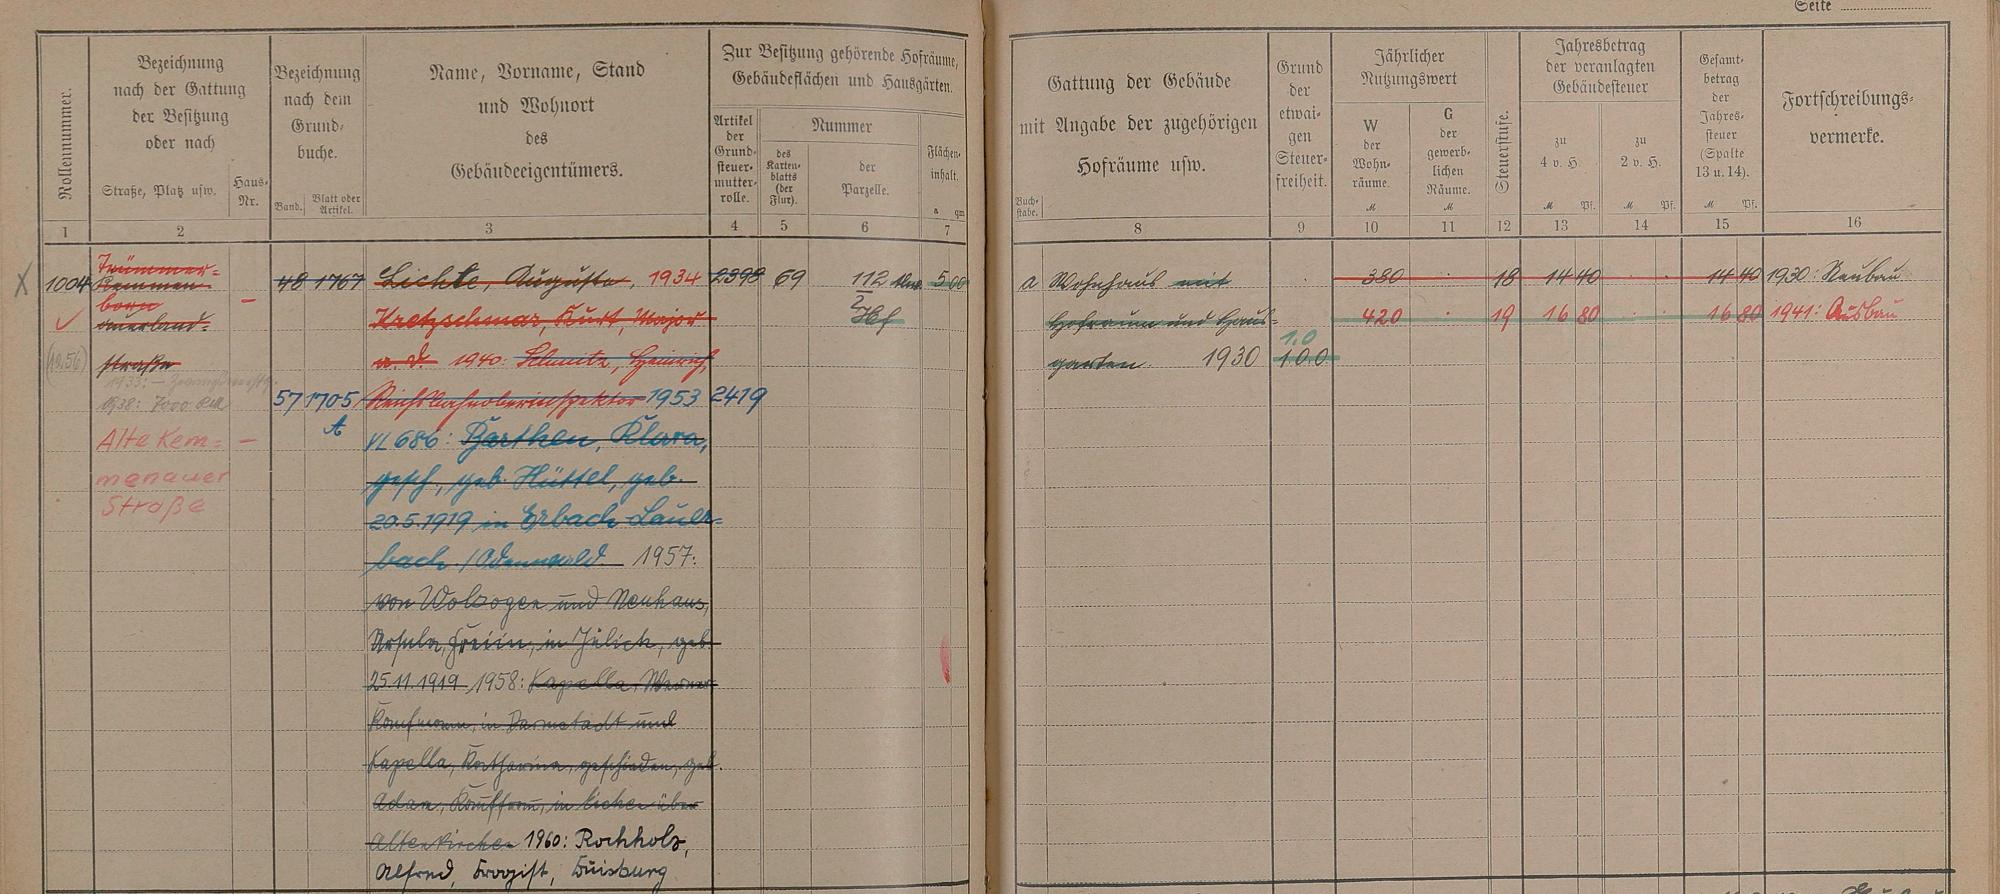 Seite
Rollennummer.
Bezeichnung
nach der Gattung
der Besitzung
oder nach
Straße, Platz usw.
Haus-
Nr.
Bezeichnung
nach dem
Grund-
buche.
Band.
Blatt oder
Artikel.
Name, Vorname, Stand
und Wohnort
des
Gebäudeeigentümers.
Zur Besitzung gehörende Hofräume,
Gebäudeflächen und Hausgärten.
Artikel
der
Grund-
steuer-
mutter-
rolle.
Nummer
des
Karten-
blatts
(der
Flur).
der
Parzelle.
Flächen-
inhalt.
a qm
Gattung der Gebäude
mit Angabe der zugehörigen
Hofräume usw.
Buch-
stabe.
Grund
der
etwai-
gen
Steuer-
freiheit.
Jährlicher
Nutzungswert
W
der
Wohn-
räume.
M
G
der
gewerb-
lichen
Räume.
M
Steuerstufe.
Jahresbetrag
der veranlagten
Gebäudesteuer
zu
4 v. H.
M Pf.
zu
2 v. H.
M Pf.
Gesamt-
betrag
der
Jahres-
steuer
(Spalte
13 u. 14).
M Pf.
Fortschreibungs-
vermerke.
1 2 3 4 5 6 7 8 9 10 11 12 13 14 15 16
1004
straße
1938: 7000 RM
Alte Kem=
menauer
Straße
–
–
48 1767
57 1705
A
Lichte, Auguste, 1934
Kretzschmar, Kurt, Major
a. d. 1940: Schmitz, Heinrich,
Reichsbahnoberinspektor 1953
VL 686: Barthen, Klara,
gesch., geb. Hüttel, geb.
20.5.1919 in Erbach-Lauer=
bach /Odenwald. 1957:
von Wolzogen und Neuhaus,
Ursula, Freiin, in Jülich, geb.
25.11.1919 1958: Kapella, Werner
Kaufmann, in Darmstadt und
Kapella, Katharina, geschieden, geb.
Adam, Kauffrau, in
Altenkirchen 1960: Rochholz,
Alfred, Drogist, Duisburg
2398 69 112 5 00
2
Hf
2419
a Wohnhaus mit
Hofraum und Haus=
garten. 1930
1.0
10.0
380 18 14 40 14 40 1930: Neubau
420 19 16 80 16 80 1941: Ausbau